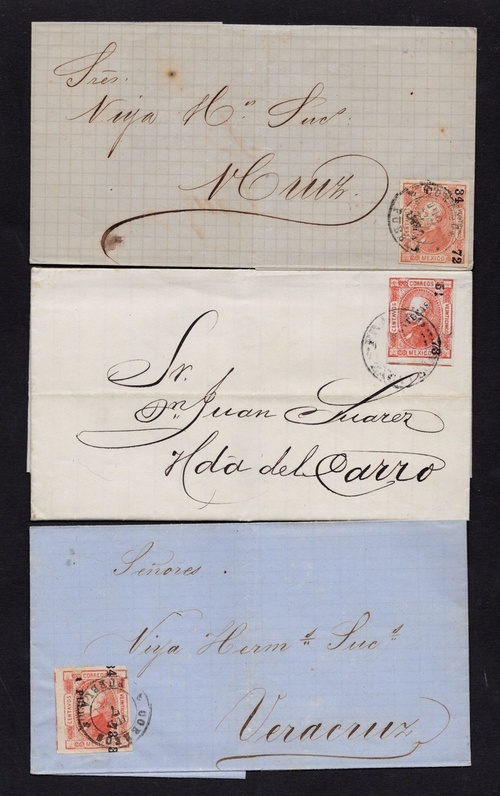 Sres.
Viya H.ˢ Suc.ˢ
VCruz
34
CORREOS
MEXICO
72
51
CORREOS
CENTAVOS
CENTAVOS
MEXICO
73
Sr.
Dn Juan Suarez
Hda del Carro
Señores
Viya Herm.ˢ Suc.ˢ
Veracruz
34
CORREOS
CENTAVOS
PUEBLA
MEXICO